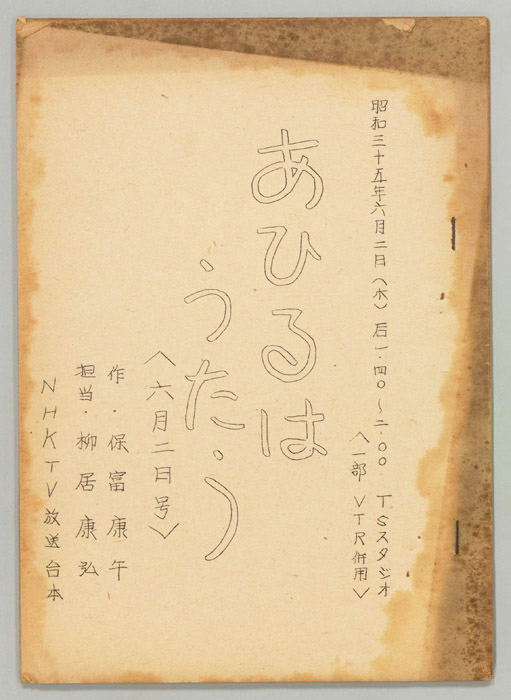 昭和三十五年六月二日(木)后一・四〇～二・〇〇 TSスタジオ
〈一部 VTR併用〉
あひるは
うたう
〈六月二日号〉
作・保富康午
担当・柳居康弘
NHKTV放送台本